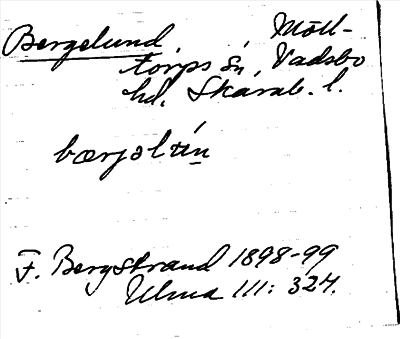 Bergelund Möll-
torps sn, Vadsbo
hd. Skarab. l.
bærjəltın
F. Bergstrand 1898-99
Ulma 111: 324.